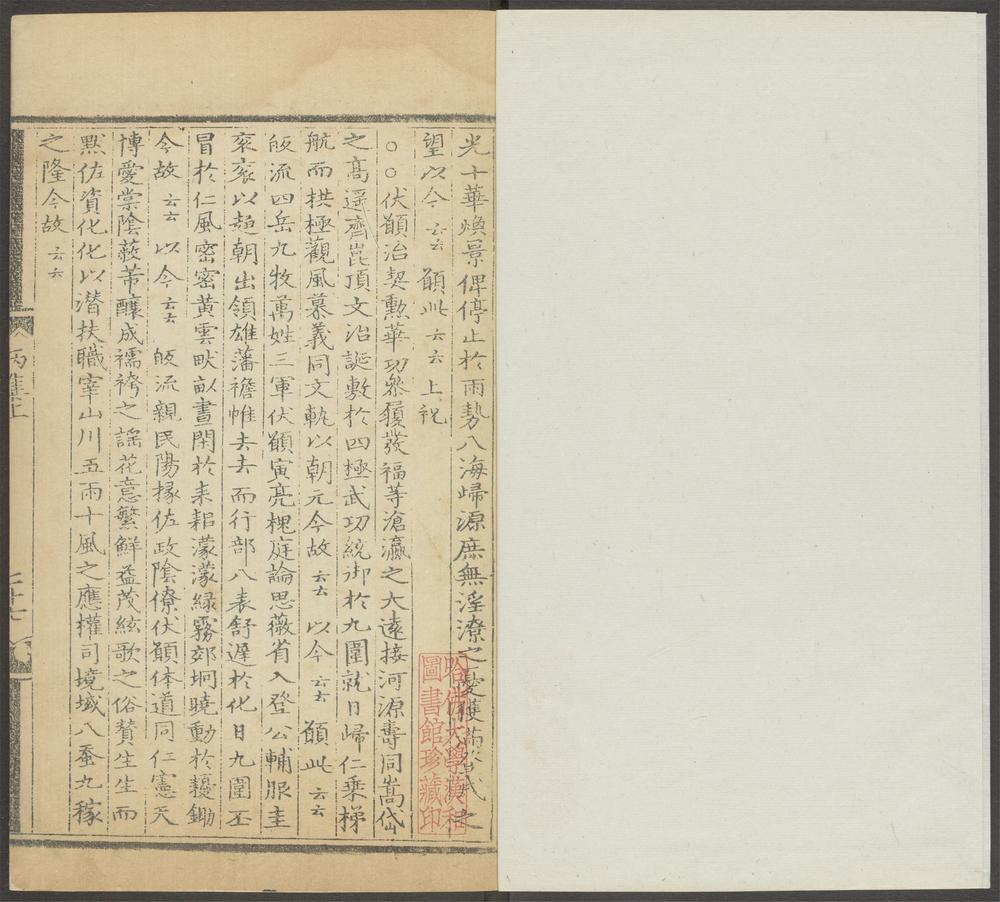 光十華煥景俾停止於雨勢八海歸源庶無淫潦之憂獲滿 之
望以今云云願此云云上祝
○○伏願治契勲華功參履發福等滄瀛之大遠接河源壽同嵩岱
之高遥齊崑頂文治誕敷於四極武功統御於九圍就日歸仁乗梯
航而拱極觀風慕義同文軌以朝元今故云云以今云云願此云云
皈流四岳九牧萬姓三軍伏願寅亮槐庭論思薇省入登公輔服圭
衮衮以趨朝出領雄藩襜帷去去而行部八表舒遲於化日九圍丕
冒於仁風密密黄雲畎畝晝閑於耒耜濛濛緑霧郊坰曉動於耰鋤
今故云云以今云云皈流親民陽掾佐政陰僚伏願体道同仁憲天
博愛棠陰蔽芾釀成襦袴之謡花意繁鮮益茂絃歌之俗賛生生而
黙佐資化化以潜扶職宰山川五雨十風之應權司境域八蚕九稼
之隆今故云云
丙集上
二十七
哈佛大學漢和
圖書館珍藏印